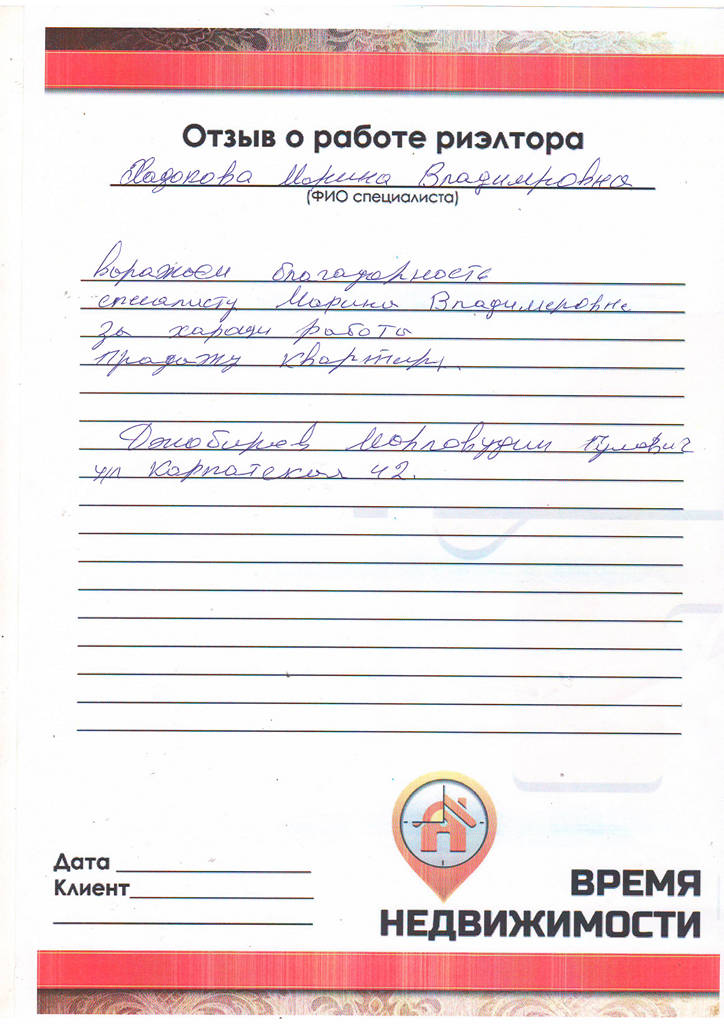 Отзыв о работе риэлтора
Хадокова Марина Владимровна
(ФИО специалиста)
Выражаем благадорность
специалисту Марина Владимеровне
За харади работы
Продажу квартиры.
ул Карпатская 42.
Дата
Клиент
ВРЕМЯ
НЕДВИЖИМОСТИ